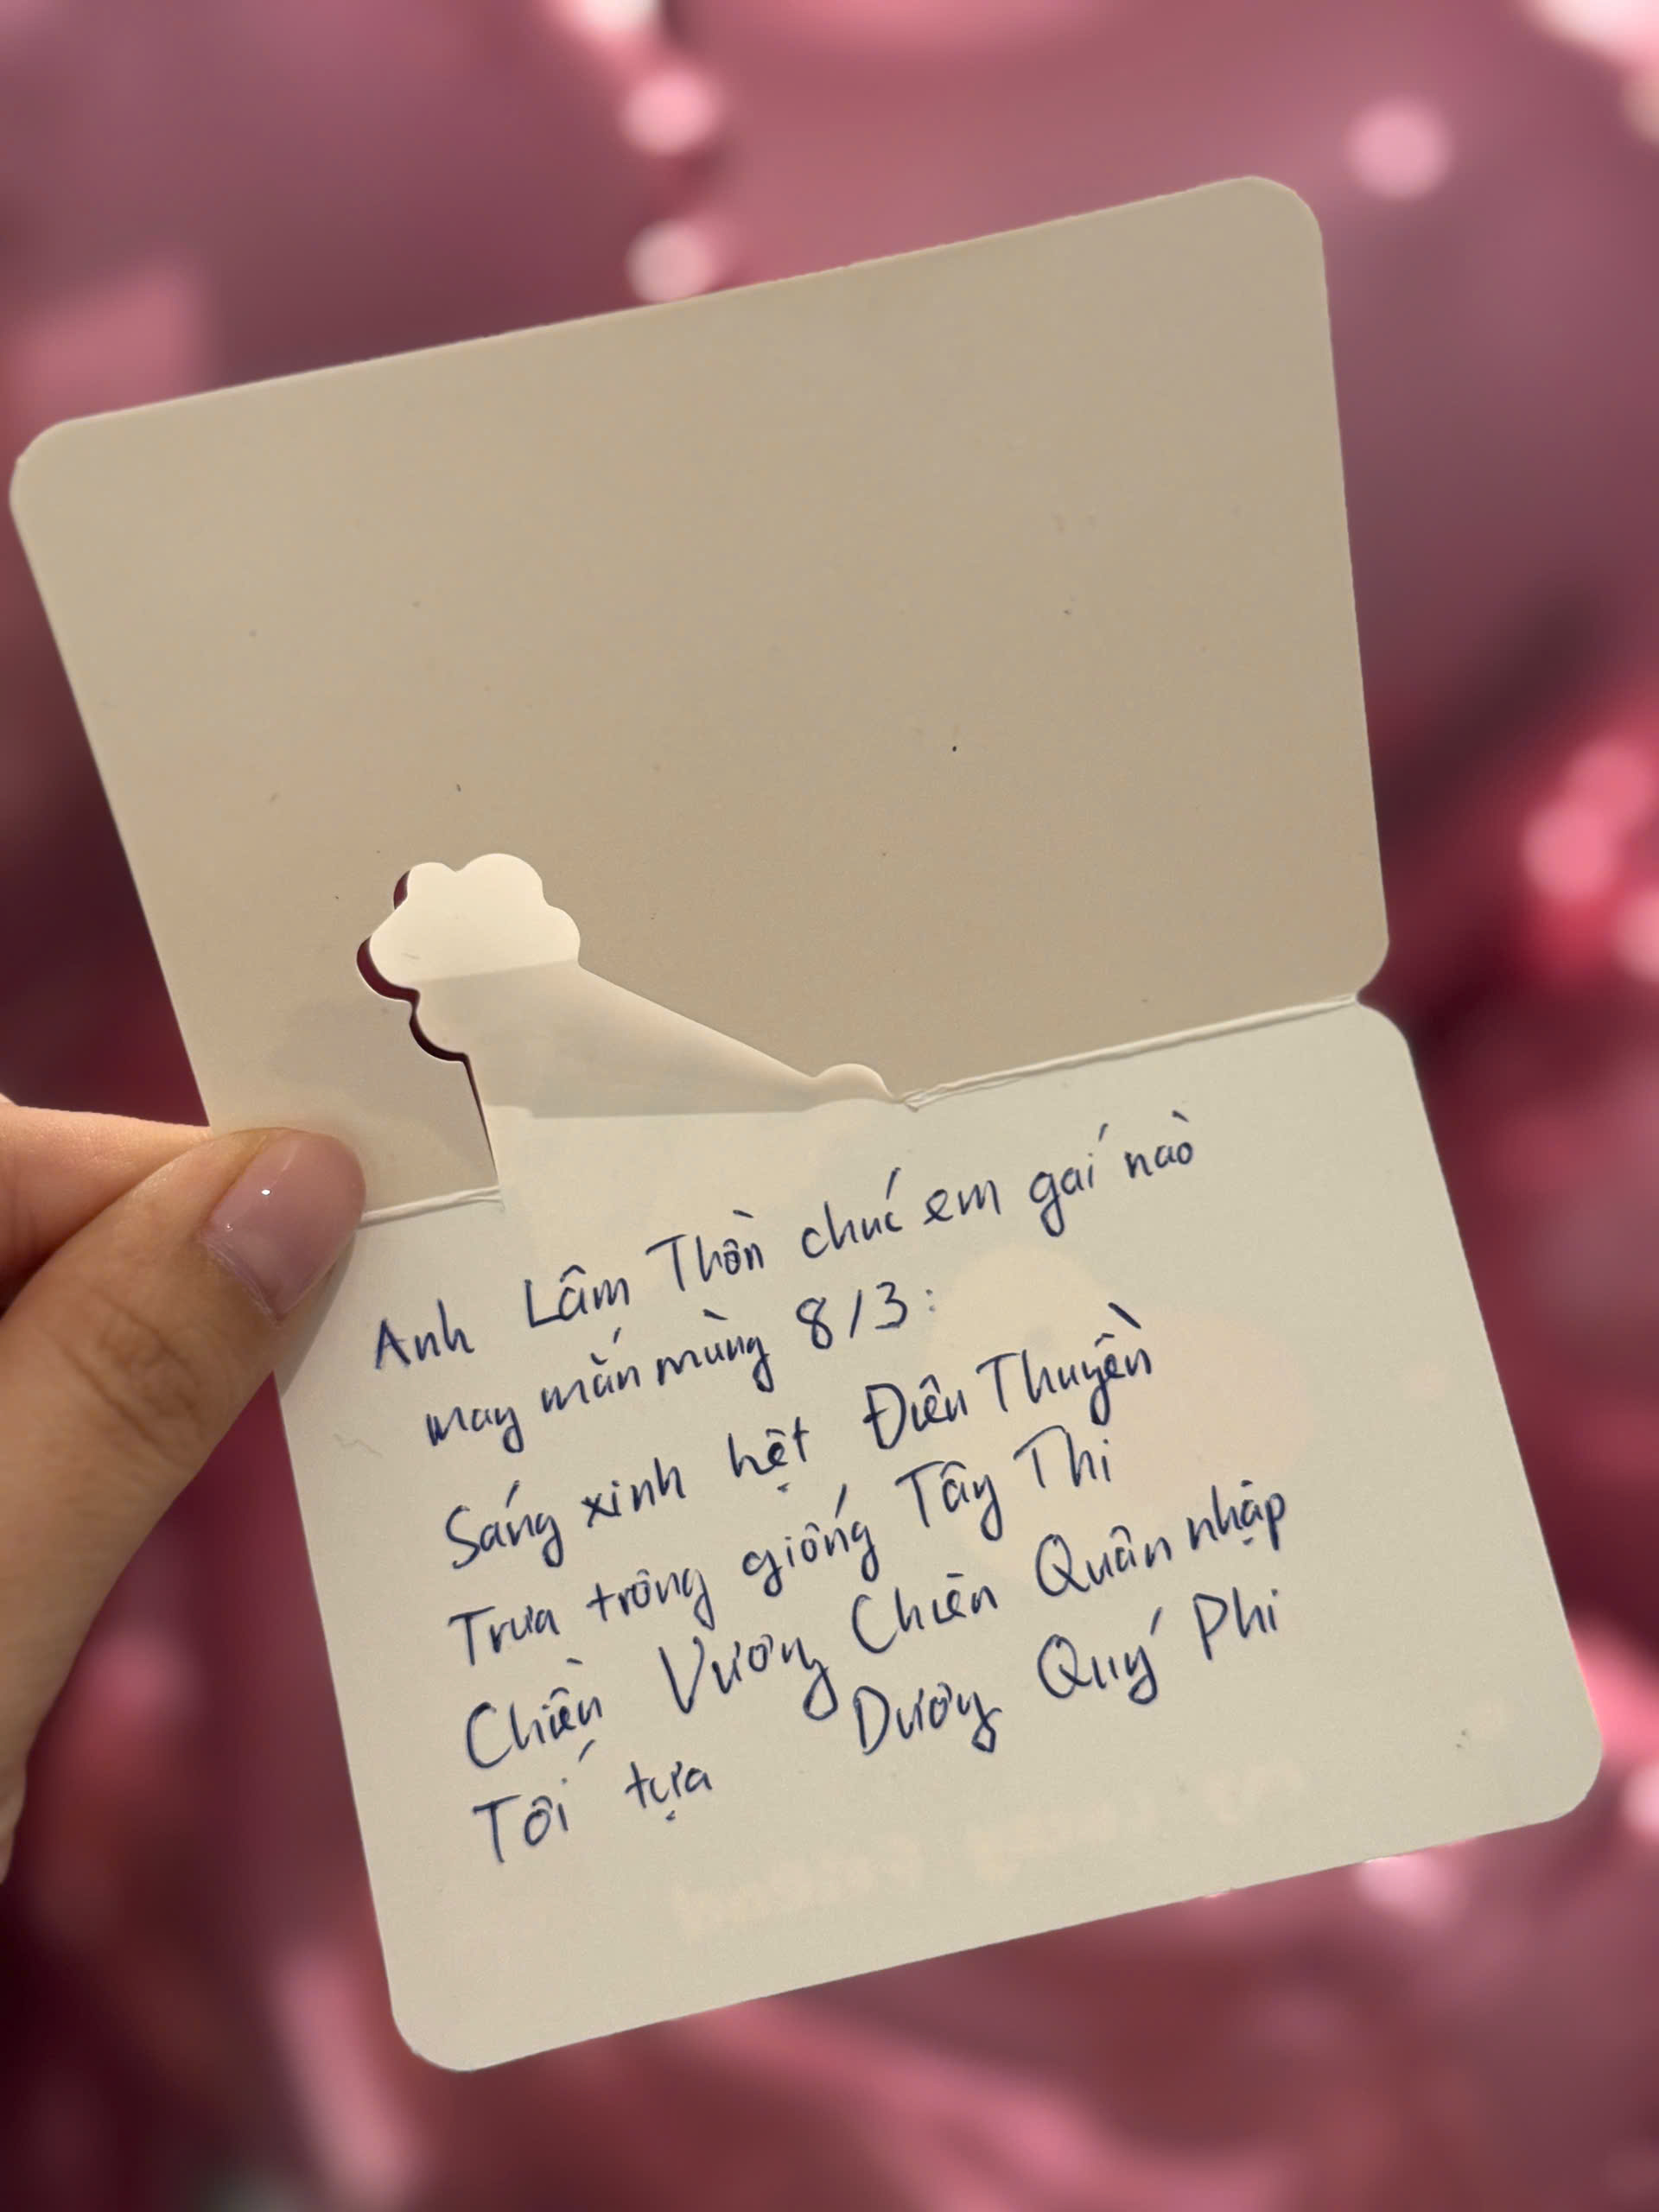 Anh Lâm Thồn chúc em gái nào
may mắn mùng 8/3:
Sáng xinh hệt Điêu Thuyền
Trưa trông giống Tây Thi
Chiều Vương Chiên Quân nhập
Tối tựa Dương Quý Phi